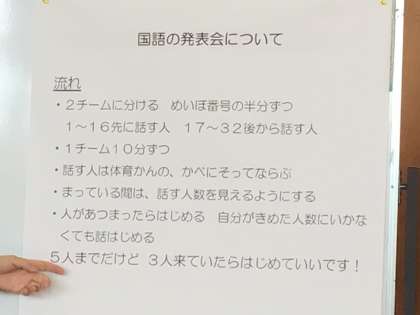 国語の発表会について
流れ
・２チームに分ける　めいぼ番号の半分ずつ
１～１６先に話す人　１７～３２後から話す人
・１チーム１０分ずつ
・話す人は体育かんの、かべにそってならぶ
・まっている間は、話す人数を見えるようにする
・人があつまったらはじめる　自分がきめた人数にいかな
くても話はじめる
５人までだけど　３人来ていたらはじめていいです！